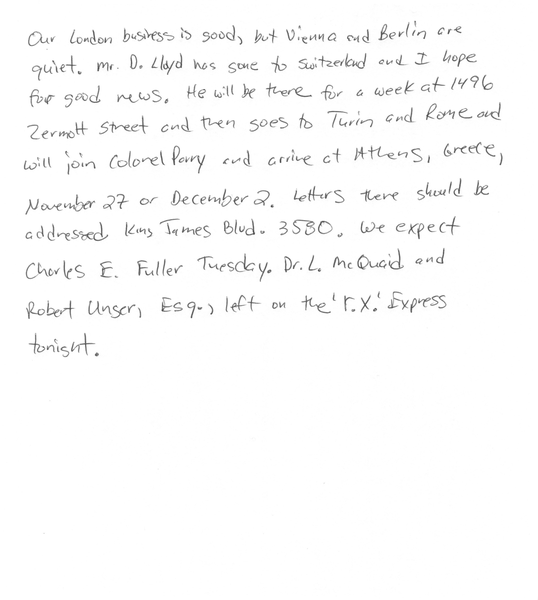 Our London business is good, but Vienna and Berlin are
quiet. Mr. D. Lloyd has gone to Switzerland and I hope
for good news. He will be there for a week at 1496
Zermott Street and then goes to Turin and Rome and
will join Colonel Parry and arrive at Athens, Greece,
November 27 or December 2. Letters there should be
addressed King James Blvd. 3580. We expect
Charles E. Fuller Tuesday. Dr. L. McQuaid and
Robert Unger, Esq., left on the 'Y.X.' Express
tonight.